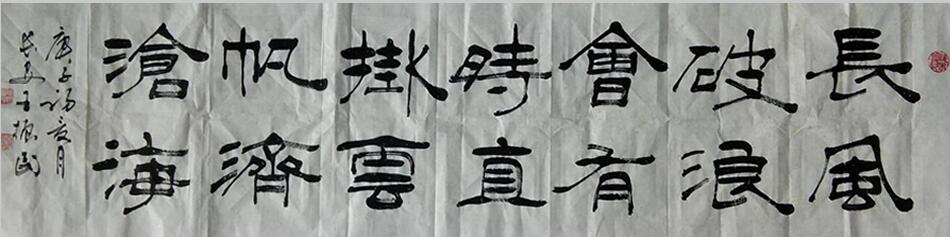 長風
破浪
會有
時直
掛雲
帆濟
滄海
庚子夏月
長安王振民